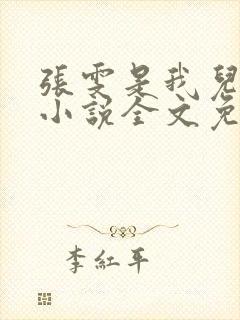 張雯是我兒
小說全文免
李紅平